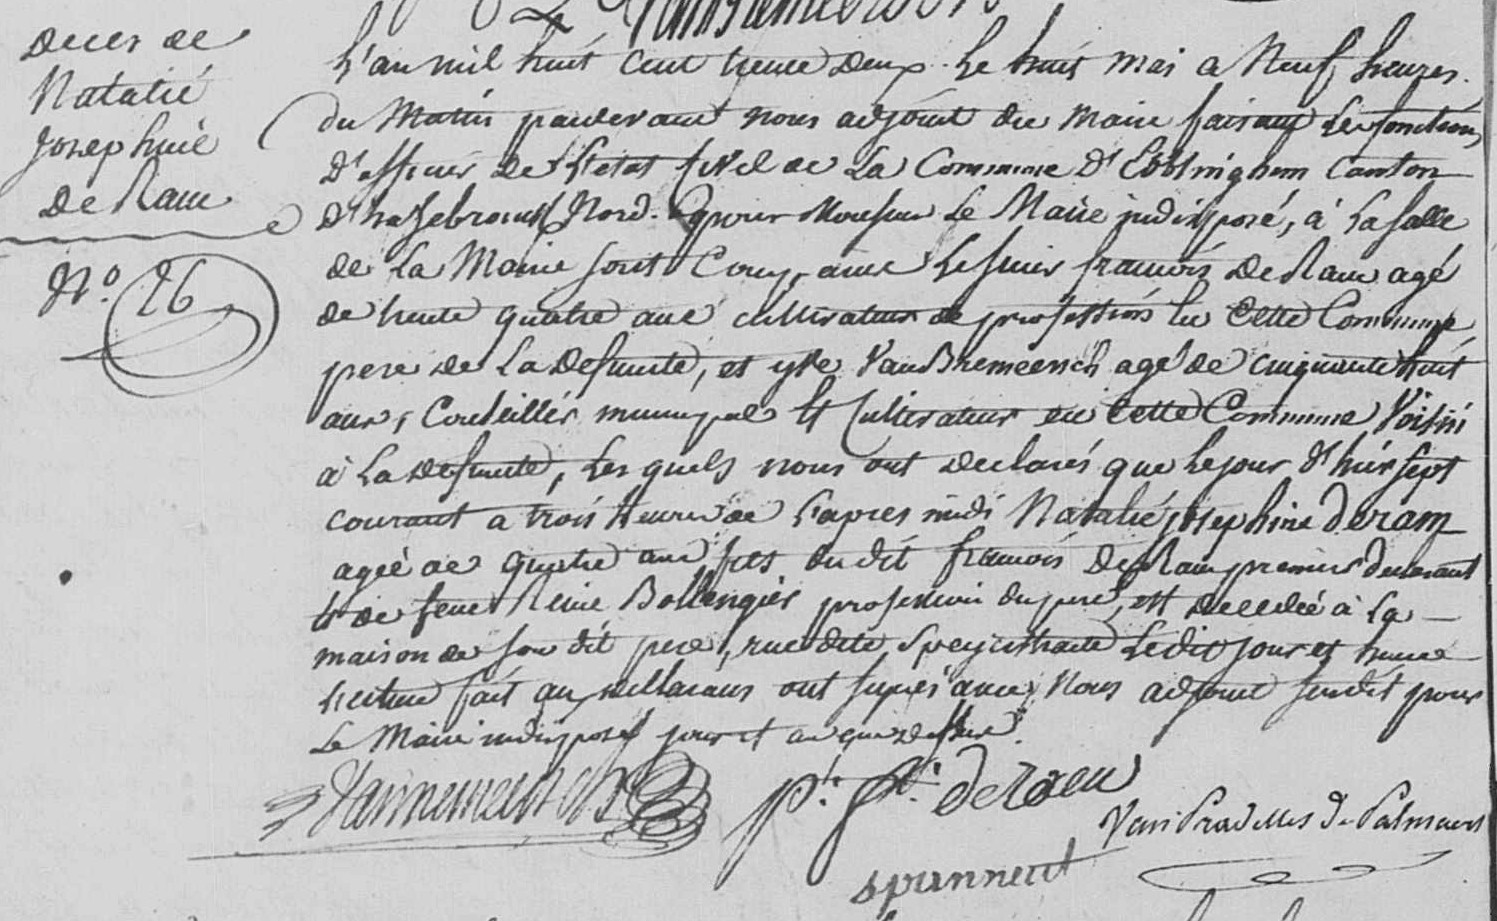 Deces de
Natalié
Josephine
De Ram
N.º 26
L'an mil huit cent trente deux. Le huit mai a Neuf heures
du Matin pardevant nous adjoint du Maire faisant les fonctions
D'officier de L'etat Civil de La Commune D'Ebblinghem Canton
D'hazebrouck Nord. pour Monsieur Le Maire indisposé, à La Salle
de La Mairie sont Comparus Le sieur francois De Ram agé
de trente quatre ans cultivateur de profession en Cette Commune
pere de La Defunte, et VanBremeersch agé de cinquante huit
ans, Conseiller municipal et Cultivateur en Cette Commune Voisin
à La defunte, Les quels nous ont declarés que Le jour D'hier sept
courant a trois heures de L'apres midi Natalié josephine Deram
ageé de quatre ans du dit francois De Ram premier declarant
et de feue Reine Bollengier profession du pere, est decedeé à La
maison de son dit pere, rue dite Le dit jour et heure
Lecture fait aux declarans ont signés avec Nous adjoint susdit pour
Le Maire indisposé jour et an que dessus.
P.r f.s deram
Van Pradelles De Palmaert
spanneut